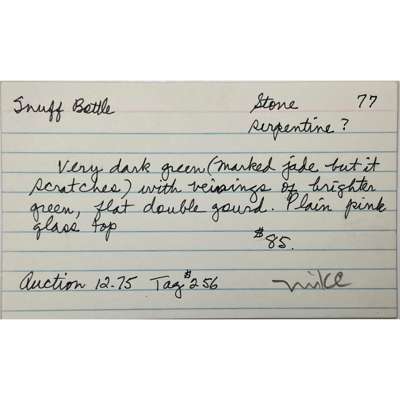 Snuff Bottle Stone 77
serpentine?
Very dark green (marked jade but it
scratches) with veinings of brighter
green, flat double gourd. Plain pink
glass top
$85.
Auction 12-75 Tag $256 mike